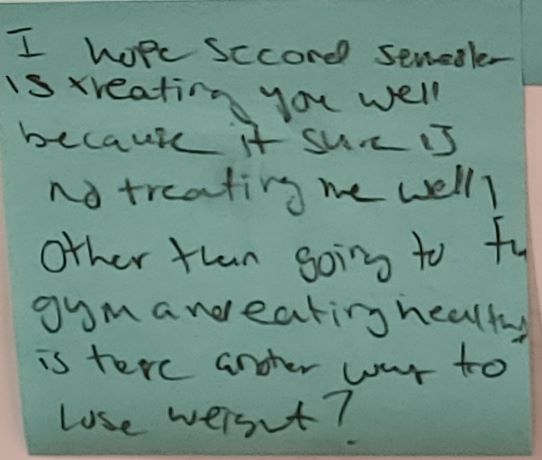 I hope second semester
is treating you well
because it sure is
no treating me well!
Other than going to the
gym and eating healthy
is there another way to
lose weight?